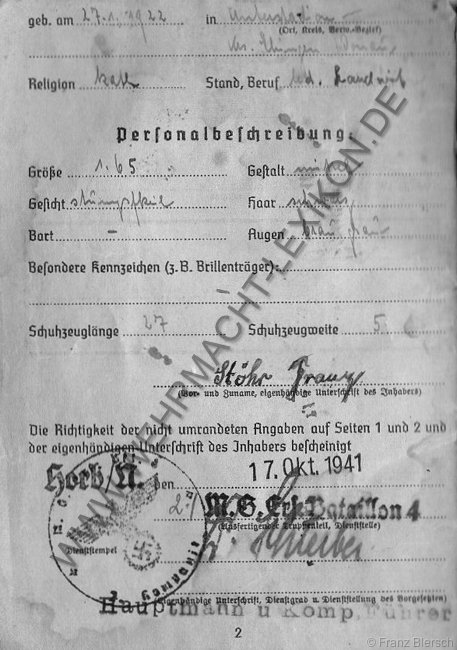 geb. am 27.1.1922 in
(Ort, Kreis, Verw.-Bezirk)
Religion kath. Stand, Beruf led. Landwirt
Personalbeschreibung.
Größe 1.65 Gestalt mittel
Gesicht Haar schwarz
Bart – Augen braun
Besondere Kennzeichen (z.B. Brillenträger):
Schuhzeuglänge 27 Schuhzeugweite 5
Stöhr Franz
(Vor- und Zuname, eigenhändige Unterschrift des Inhabers)
Die Richtigkeit der nicht umrandeten Angaben auf Seiten 1 und 2 und
der eigenhändigen Unterschrift des Inhabers bescheinigt
Horb/N. den 17. Okt. 1941
M.G. Ers. Bataillon 4
(Ausfertigender Truppenteil, Dienststelle)
Dienststempel
Kompanie
(Eigenhändige Unterschrift, Dienstgrad u. Dienststellung des Vorgesetzten)
Hauptmann u Komp. Führer
2
WWW.WEHRMACHT-LEXIKON.DE
© Franz Blersch